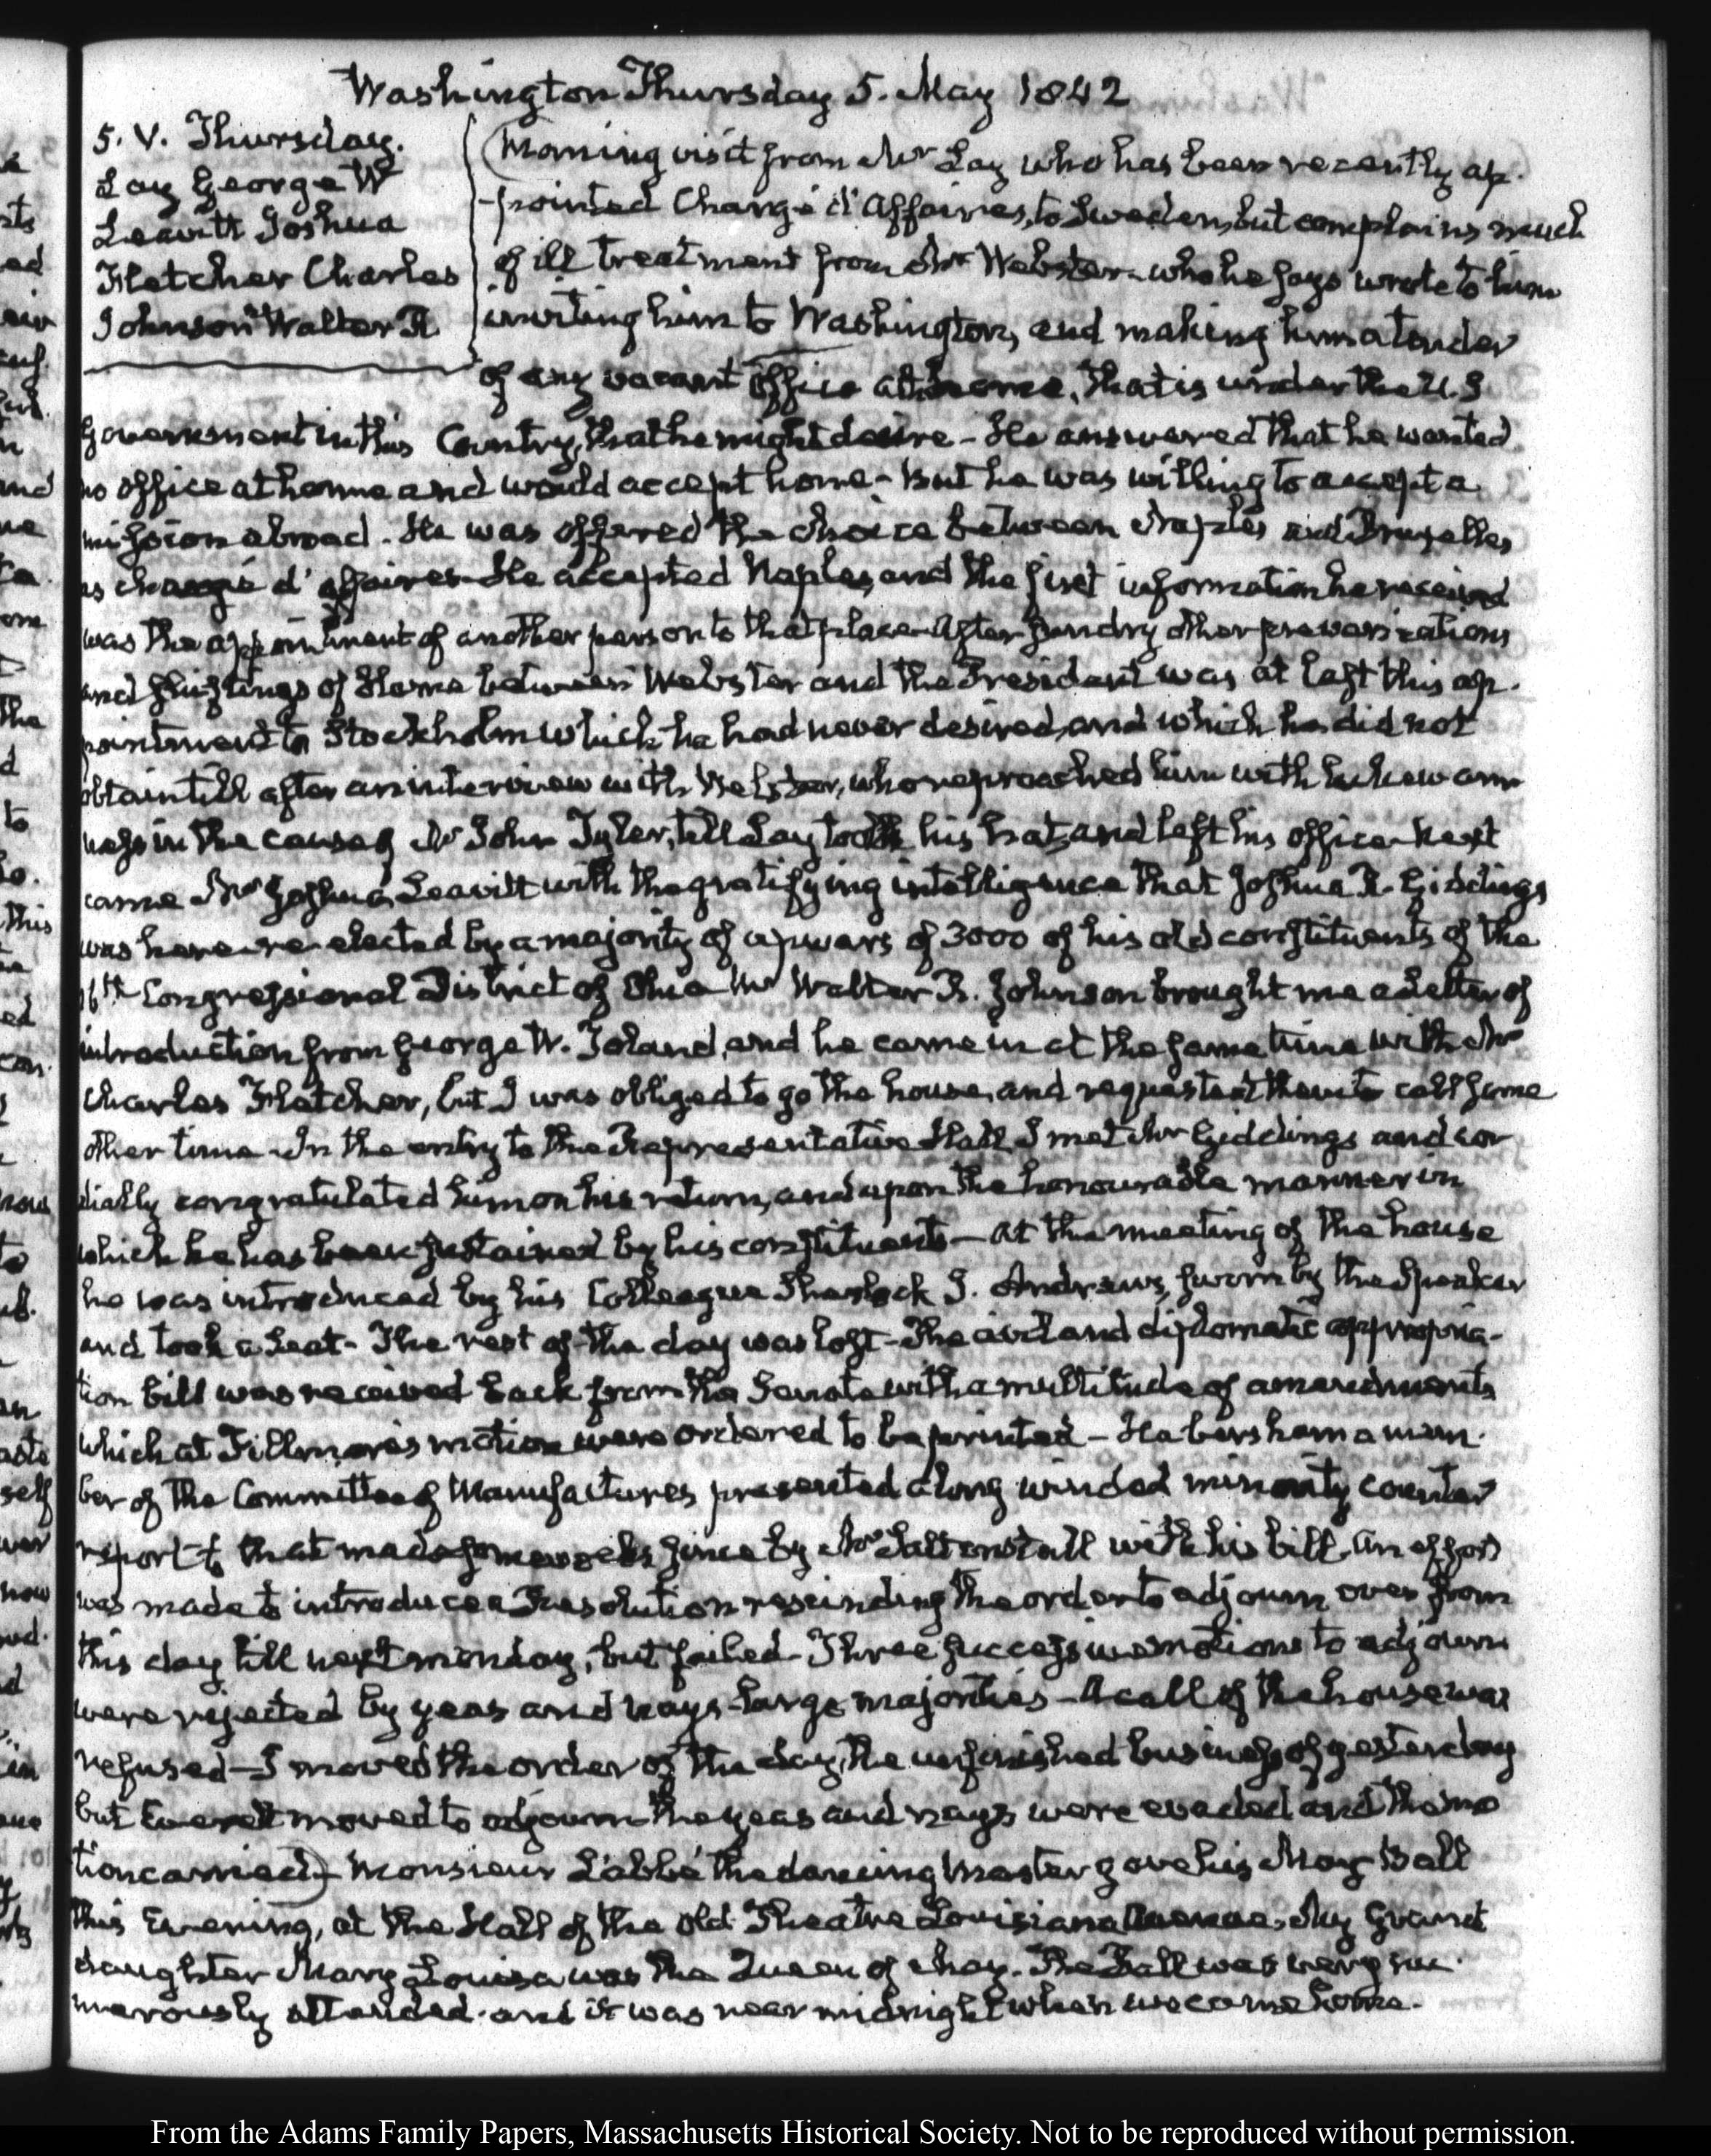 Washington Thursday 5. May 1842
5. V. Thursday.
Lay George W
Leavitt Joshua
Fletcher Charles
Johnson Walter R
Morning visit from Mr Lay who has been recently ap-
pointed Chargé d'Affaires, to Sweden, but complains much
of ill treatment from Mr Webster, who he says wrote to him
inviting him to Washington, and making him a tender
of any vacant office at home, that is under the U.S
Government in this Country, that he might desire - He answered that he wanted
no office at home and would accept none - But he was willing to accept a
mission abroad. He was offered the choice between Naples and Bruxelles
as chargé d'affaires - He accepted Naples, and the first information he received
was the appointment of another person to that place - After sundry other prevarications
and shiftings of blame between Webster and the President was at last this ap-
pointment to Stockholm which he had never desired, and which he did not
obtain till after an interview with Webster, who reproached him with lukewarm
ness in the cause of Mr John Tyler, till Lay took his hat, and left his office - Next
came Mr Joshua Leavitt with the gratifying intelligence that Joshua R. Giddings
was here re-elected by a majority of upwars of 3000 of his old constituents of the
16th Congressional District of Ohio Mr Walter R. Johnson brought me a letter of
introduction from George W. Toland, and he came in at the same time with Mr
Charles Fletcher, but I was obliged to go the house, and requested them to call some
other time - In the entry to the Representative Hall I met Mr Giddings and cor
dially congratulated him on his return, and upon the honourable manner in
which he has been sustained by his constituents - At the meeting of the house
he was introduced by his Colleague Sherlock J. Andrews, sworn by the Speaker
and took a seat - The rest of the day was lost - The civil and diplomatic appropria-
tion bill was received back from the Senate with a multitude of amendments
which at Fillmore's motion were ordered to be printed - Habersham a mem-
ber of the Committee of Manufactures presented a long winded minority counter
report to that made some weeks since by Mr Saltonstall with his bill. An effort
was made to introduce a Resolution rescinding the order to adjourn over from
this day till next monday, but failed - Three successive motions to adjourn
were rejected by yeas and nays - large majorities - A call of the house was
refused - I moved the order of the day, the unfinished business of yesterday
but Everett moved to adjourn - the yeas and nays were evaded and the mo
tion carried) - Monsieur Labbé the dancing Master gave his May Ball
this Evening, at the Hall of the old Theatre Louisiana Avenue. My Grand
daughter Mary Louisa was the Queen of May. The Ball was very nu-
merously attended - and it was near midnight when we came home.
From the Adams Family Papers, Massachusetts Historical Society. Not to be reproduced without permission.